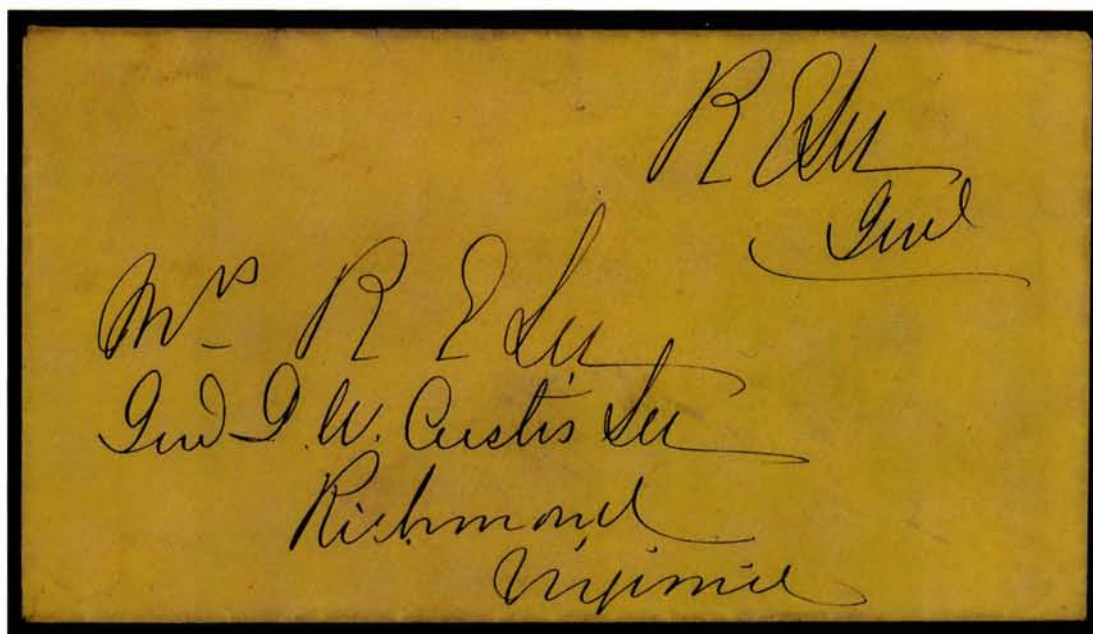 R E Lee
Genl
Mrs R E Lee
Genl G. W. Custis Lee
Richmond
Virginia